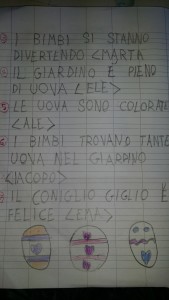 I BIMBI SI STANNO
DIVERTENDO <MARTA
IL GIARDINO È PIENO
DI UOVA <ELE>
LE UOVA SONO COLORATE
<ALE>
I BIMBI TROVANO TANTE
UOVA NEL GIARDINO
<IACOPO>
IL CONIGLIO GIGLIO È
FELICE <EMA>